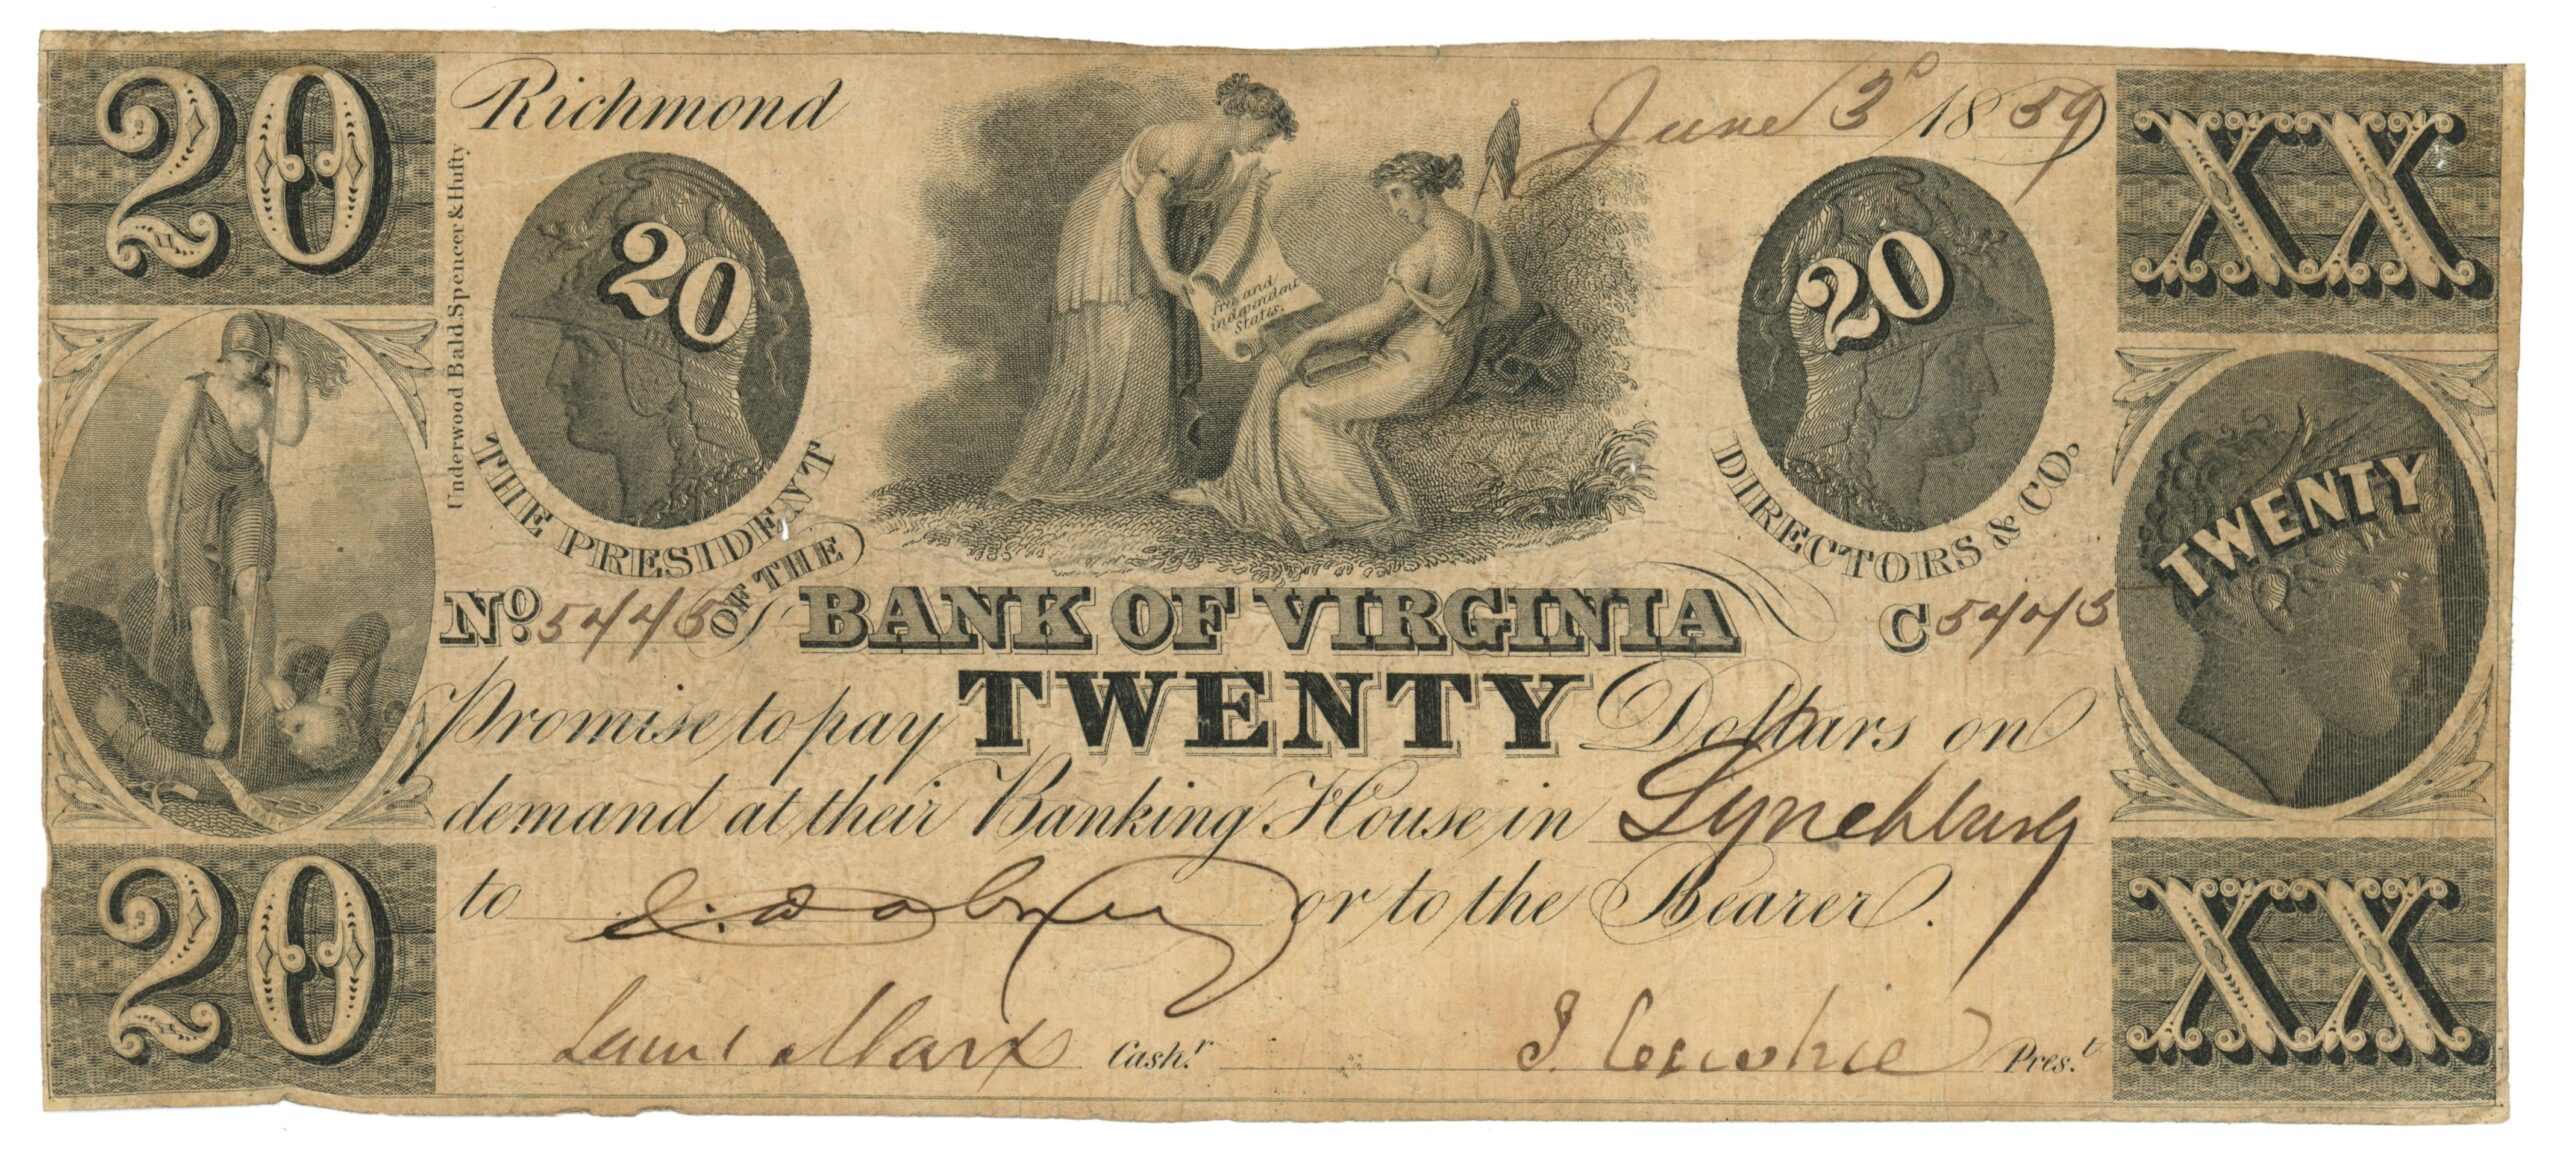 20
Richmond
June 3d 1859
XX
Underwood Bald. Spencer & Hufty
20
Free and independent States.
20
THE PRESIDENT
DIRECTORS & CO.
TWENTY
No. 5445 OF THE BANK OF VIRGINIA C 5445
Promise to pay TWENTY Dollars on
demand at their Banking House in Lynchburg
to or to the Bearer.
20
Marx Cash.r
Pres.t
XX